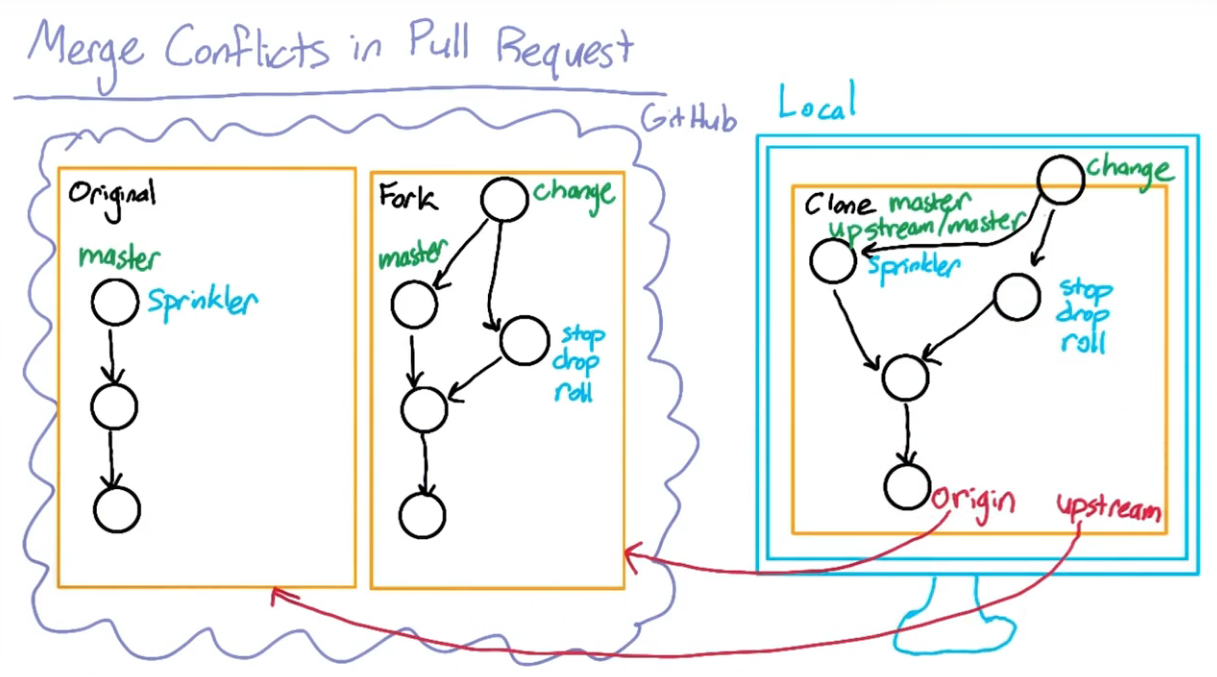 Merge Conflicts in Pull Request
GitHub
Original
master
Sprinkler
Fork
change
master
stop
drop
roll
Local
change
Clone master
upstream/master
Sprinkler
stop
drop
roll
Origin
upstream